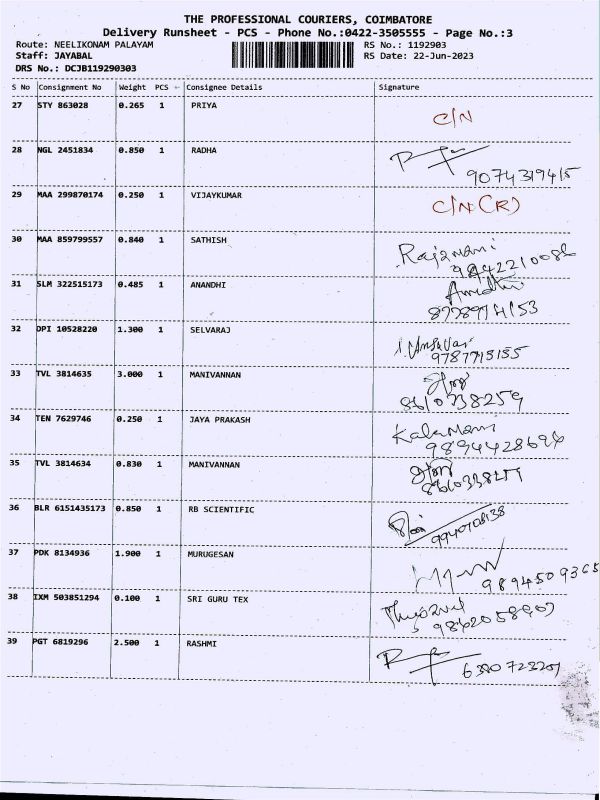 THE PROFESSIONAL COURIERS, COIMBATORE
Delivery Runsheet - PCS - Phone No.:0422-3505555 - Page No.:3
Route: NEELIKONAM PALAYAM RS No.: 1192903
Staff: JAYABAL RS Date: 22-Jun-2023
DRS No.: DCJB119290303
S No Consignment No Weight PCS Consignee Details Signature
27 STY 863028 0.265 1 PRIYA C/N
28 NGL 2451834 0.850 1 RADHA
9074319415
29 MAA 299870174 0.250 1 VIJAYKUMAR C/N (R)
30 MAA 859799557 0.840 1 SATHISH Rajamani
31 SLM 322515173 0.485 1 ANANDHI
32 OPI 10528220 1.300 1 SELVARAJ
33 TVL 3814635 3.000 1 MANIVANNAN
8610338259
34 TEN 7629746 0.250 1 JAYA PRAKASH Kalamani
9894428694
35 TVL 3814634 0.830 1 MANIVANNAN
36 BLR 6151435173 0.850 1 RB SCIENTIFIC
37 PDK 8134936 1.900 1 MURUGESAN
9894509365
38 IXM 503851294 0.100 1 SRI GURU TEX
39 PGT 6819296 2.500 1 RASHMI